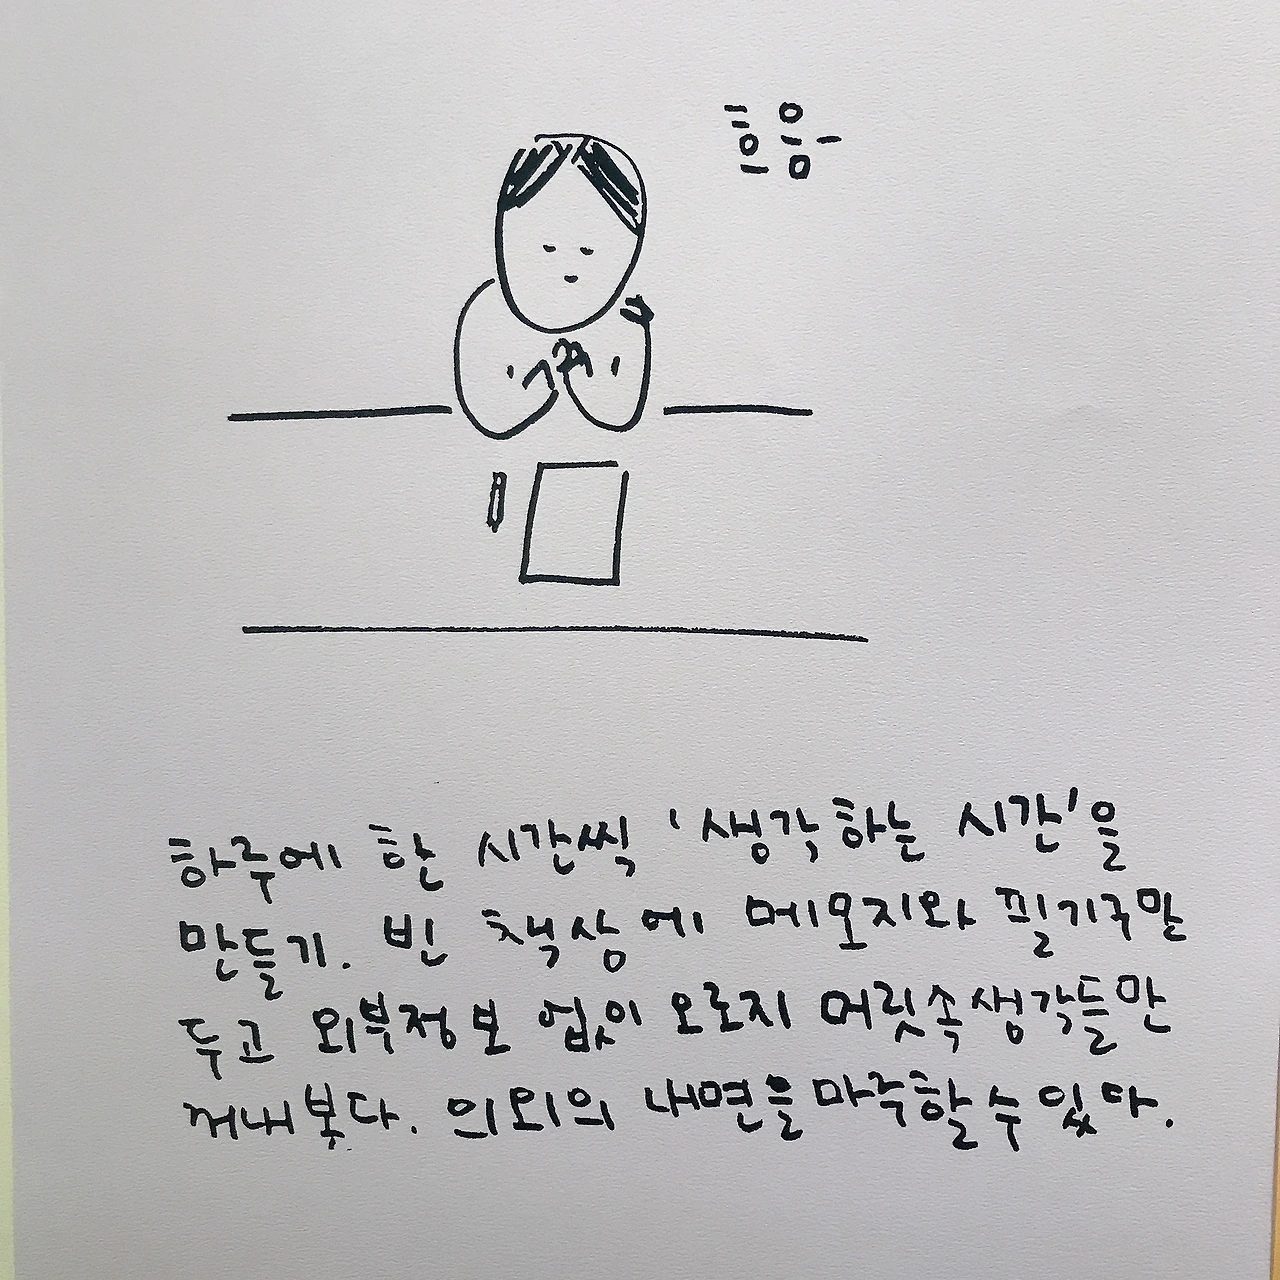 흐음-
하루에 한 시간씩 '생각하는 시간'을
만들기. 빈 책상에 메모지와 필기구만
두고 외부정보 없이 오로지 머릿속생각들만
꺼내봇다. 의외의 내면을마주할수있다.